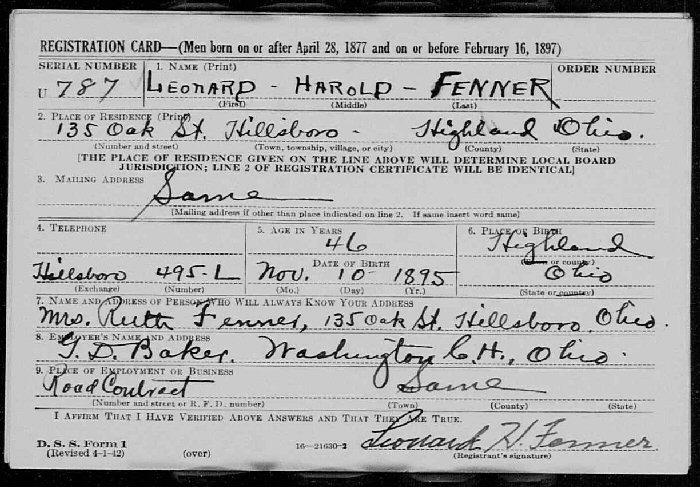 REGISTRATION CARD—(Men born on or after April 28, 1877 and on or before February 16, 1897)
SERIAL NUMBER 1. NAME (Print) ORDER NUMBER
U 787 LEONARD - HAROLD - FENNER
(First) (Middle) (Last)
2. PLACE OF RESIDENCE (Print)
135 Oak St. Hillsboro - Highland Ohio.
(Number and street) (Town, township, village, or city) (County) (State)
[THE PLACE OF RESIDENCE GIVEN ON THE LINE ABOVE WILL DETERMINE LOCAL BOARD
JURISDICTION; LINE 2 OF REGISTRATION CERTIFICATE WILL BE IDENTICAL]
3. MAILING ADDRESS
Same
[Mailing address if other than place indicated on line 2. If same insert word same]
4. TELEPHONE 5. AGE IN YEARS 6. PLACE OF BIRTH
46 Highland
DATE OF BIRTH (Town or county)
Hillsboro 495-L Nov. 10 1895 Ohio
(Exchange) (Number) (Mo.) (Day) (Yr.) (State or country)
7. NAME AND ADDRESS OF PERSON WHO WILL ALWAYS KNOW YOUR ADDRESS
Mrs. Ruth Fenner, 135 Oak St. Hillsboro, Ohio.
8. EMPLOYER'S NAME AND ADDRESS
G. D. Baker. Washington C. H., Ohio.
9. PLACE OF EMPLOYMENT OR BUSINESS
Road Contract Same
(Number and street or R. F. D. number) (Town) (County) (State)
I AFFIRM THAT I HAVE VERIFIED ABOVE ANSWERS AND THAT THEY ARE TRUE.
D. S. S. Form 1
(Revised 4-1-42) (over) 16—21630-2 Leonard H. Fenner
(Registrant's signature)